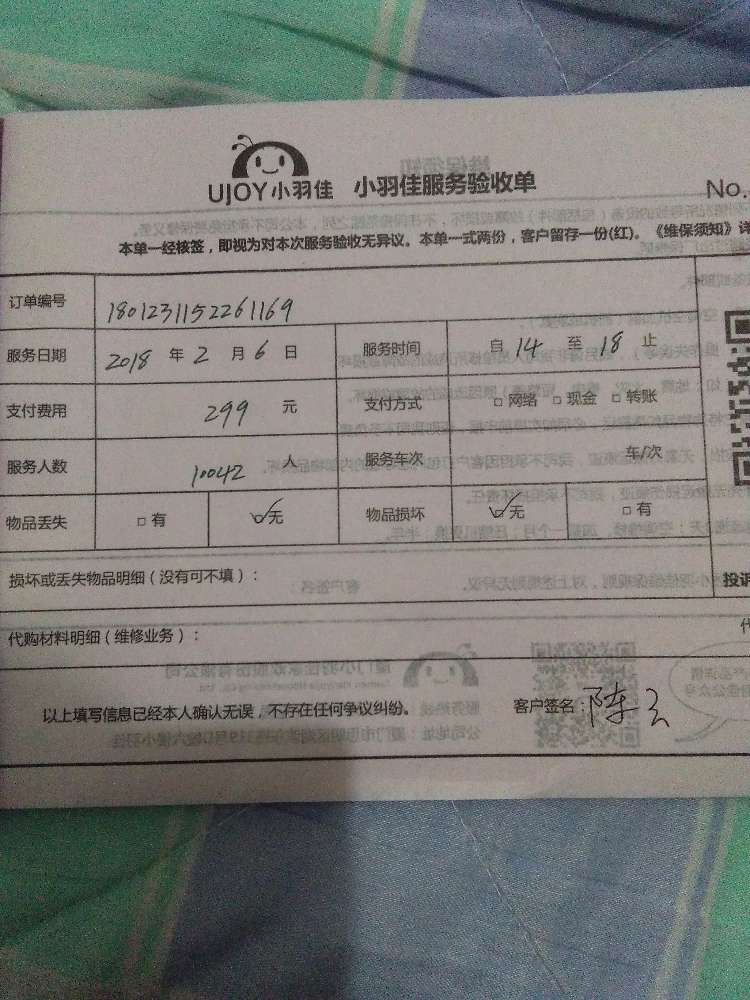 UJOY小羽佳 小羽佳服务验收单 No.
本单一经核签，即视为对本次服务验收无异议。本单一式两份，客户留存一份(红)。《维保须知》详
订单编号 1801231152261169
服务日期 2018 年 2 月 6 日 服务时间 自 14 至 18 止
支付费用 299 元 支付方式 □ 网络 □ 现金 □ 转账
服务人数 10042 人 服务车次 车/次
物品丢失 □ 有 ☑无 物品损坏 ☑无 □ 有
损坏或丢失物品明细（没有可不填）：
投诉
代购材料明细（维修业务）：
以上填写信息已经本人确认无误，不存在任何争议纠纷。 客户签名：陈云